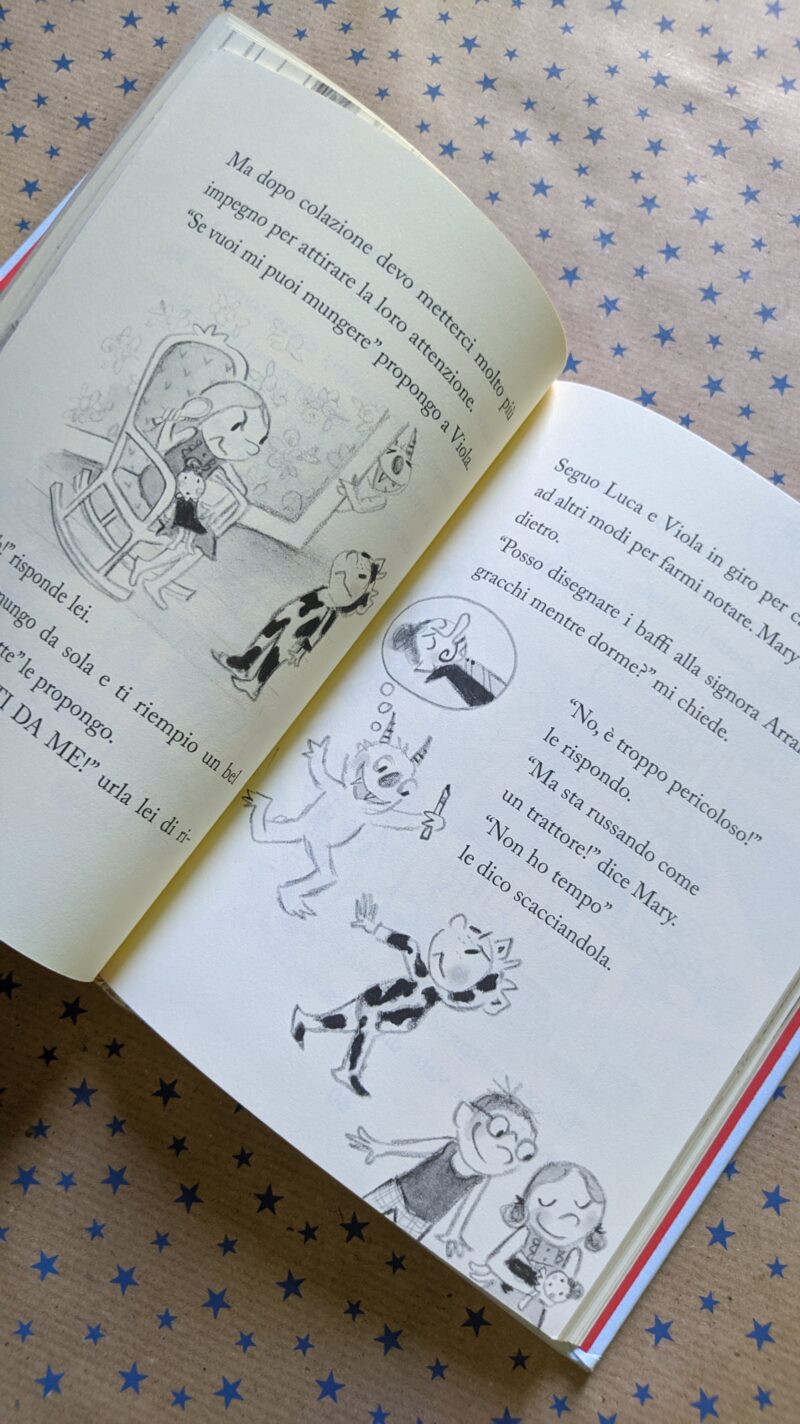 Ma dopo colazione devo metterci molto più
impegno per attirare la loro attenzione.
“Se vuoi mi puoi mungere” propongo a Viola.
risponde lei.
da sola e ti riempio un bel
le propongo.
DA ME!” urla lei di ri-
Seguo Luca e Viola in giro per
ad altri modi per farmi notare. Mary
dietro.
“Posso disegnare i baffi alla signora
gracchi mentre dorme?” mi chiede.
“No, è troppo pericoloso!”
le rispondo.
“Ma sta russando come
un trattore!” dice Mary.
“Non ho tempo”
le dico scacciandola.